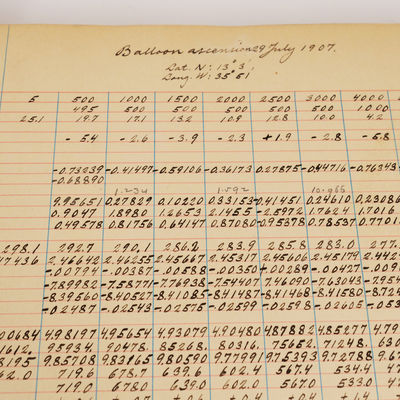 Balloon ascension 29 July 1907.
Lat. N: 13° 3'
Long. W: 35° 51'
5 500 1000 1500 2000 2500 3000 4000
495 500 500 500 500 500 1000
25.1 19.7 17.1 13.2 10.9 12.8 10.0 4.2
-5.4 -2.6 -3.9 -2.3 +1.9 -2.8 -5.8
-0.73239 -0.41497 -0.59106 -0.36173 0.27875 -0.44716 -0.76343
-0.68890
1.234 1.592 10.965
9.95651 0.27829 0.10220 0.33153 -0.41451 0.24610 0.23086
0.9047 1.8980 1.2653 2.1455 -2.5972 1.7624 1.7016
0.49578 0.81756 0.64147 0.87080 -0.95378 0.78537 0.7701
298.1 292.7 290.1 286.2 283.9 285.8 283.0 277.
47436 2.46642 2.46255 2.45667 2.45317 2.45606 2.45179 2.442
-.00794 -.00387 -.00588 -.00350 +.00289 -.00427 -.009
-7.89982 -7.58771 -7.76938 -7.54407 7.46090 -7.63043 -7.954
-8.39560 -8.40527 -8.41085 -8.41487 -8.41468 -8.41580 -8.724
-.02487 -.02543 -.02575 -.02599 -.02598 -.02605 -.053
00684 4.98197 4.95654 4.93079 4.90480 4.87882 4.85277 4.79
1612. 95934. 90478. 85268. 80316. 75652. 71248. 630
8195 9.85708 9.83165 9.80590 9.77991 9.75393 9.72788 9.67
62.0 719.6 678.7 639.6 602.4 567.4 534.4 47
719.0 678.0 639.0 602.0 567.0 533.0 47